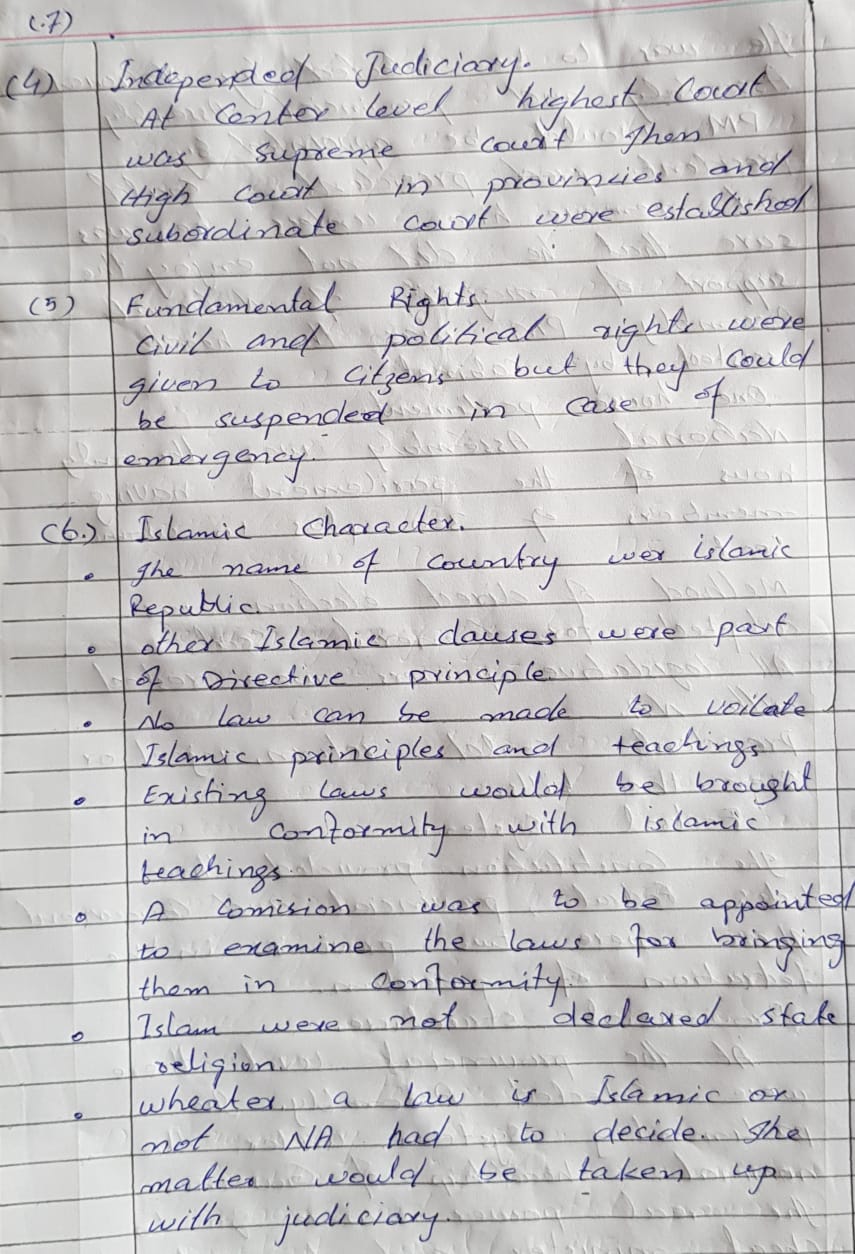 (.7)
(4) Independed Judiciary.
At Center level highest Court
was supreme court Then
High Court in provincies and
subordinate court were established
(5) Fundamental Rights.
Civil and political rights were
given to Citzens but they could
be suspended in case of
emergency.
(6.) Islamic Character.
• The name of Country wer islamic
Republic.
• other Islamic clauses were part
of Directive principle.
• No law can be made to voilate
Islamic principles and teachings
• Existing laws would be brought
in Conformity with islamic
teachings.
• A Comision was to be appointed
to examine the laws for bringing
them in Conformity.
• Islam were not declared state
religion.
• wheater a law is Islamic or
not NA had to decide. The
matter would be taken up
with judiciary.